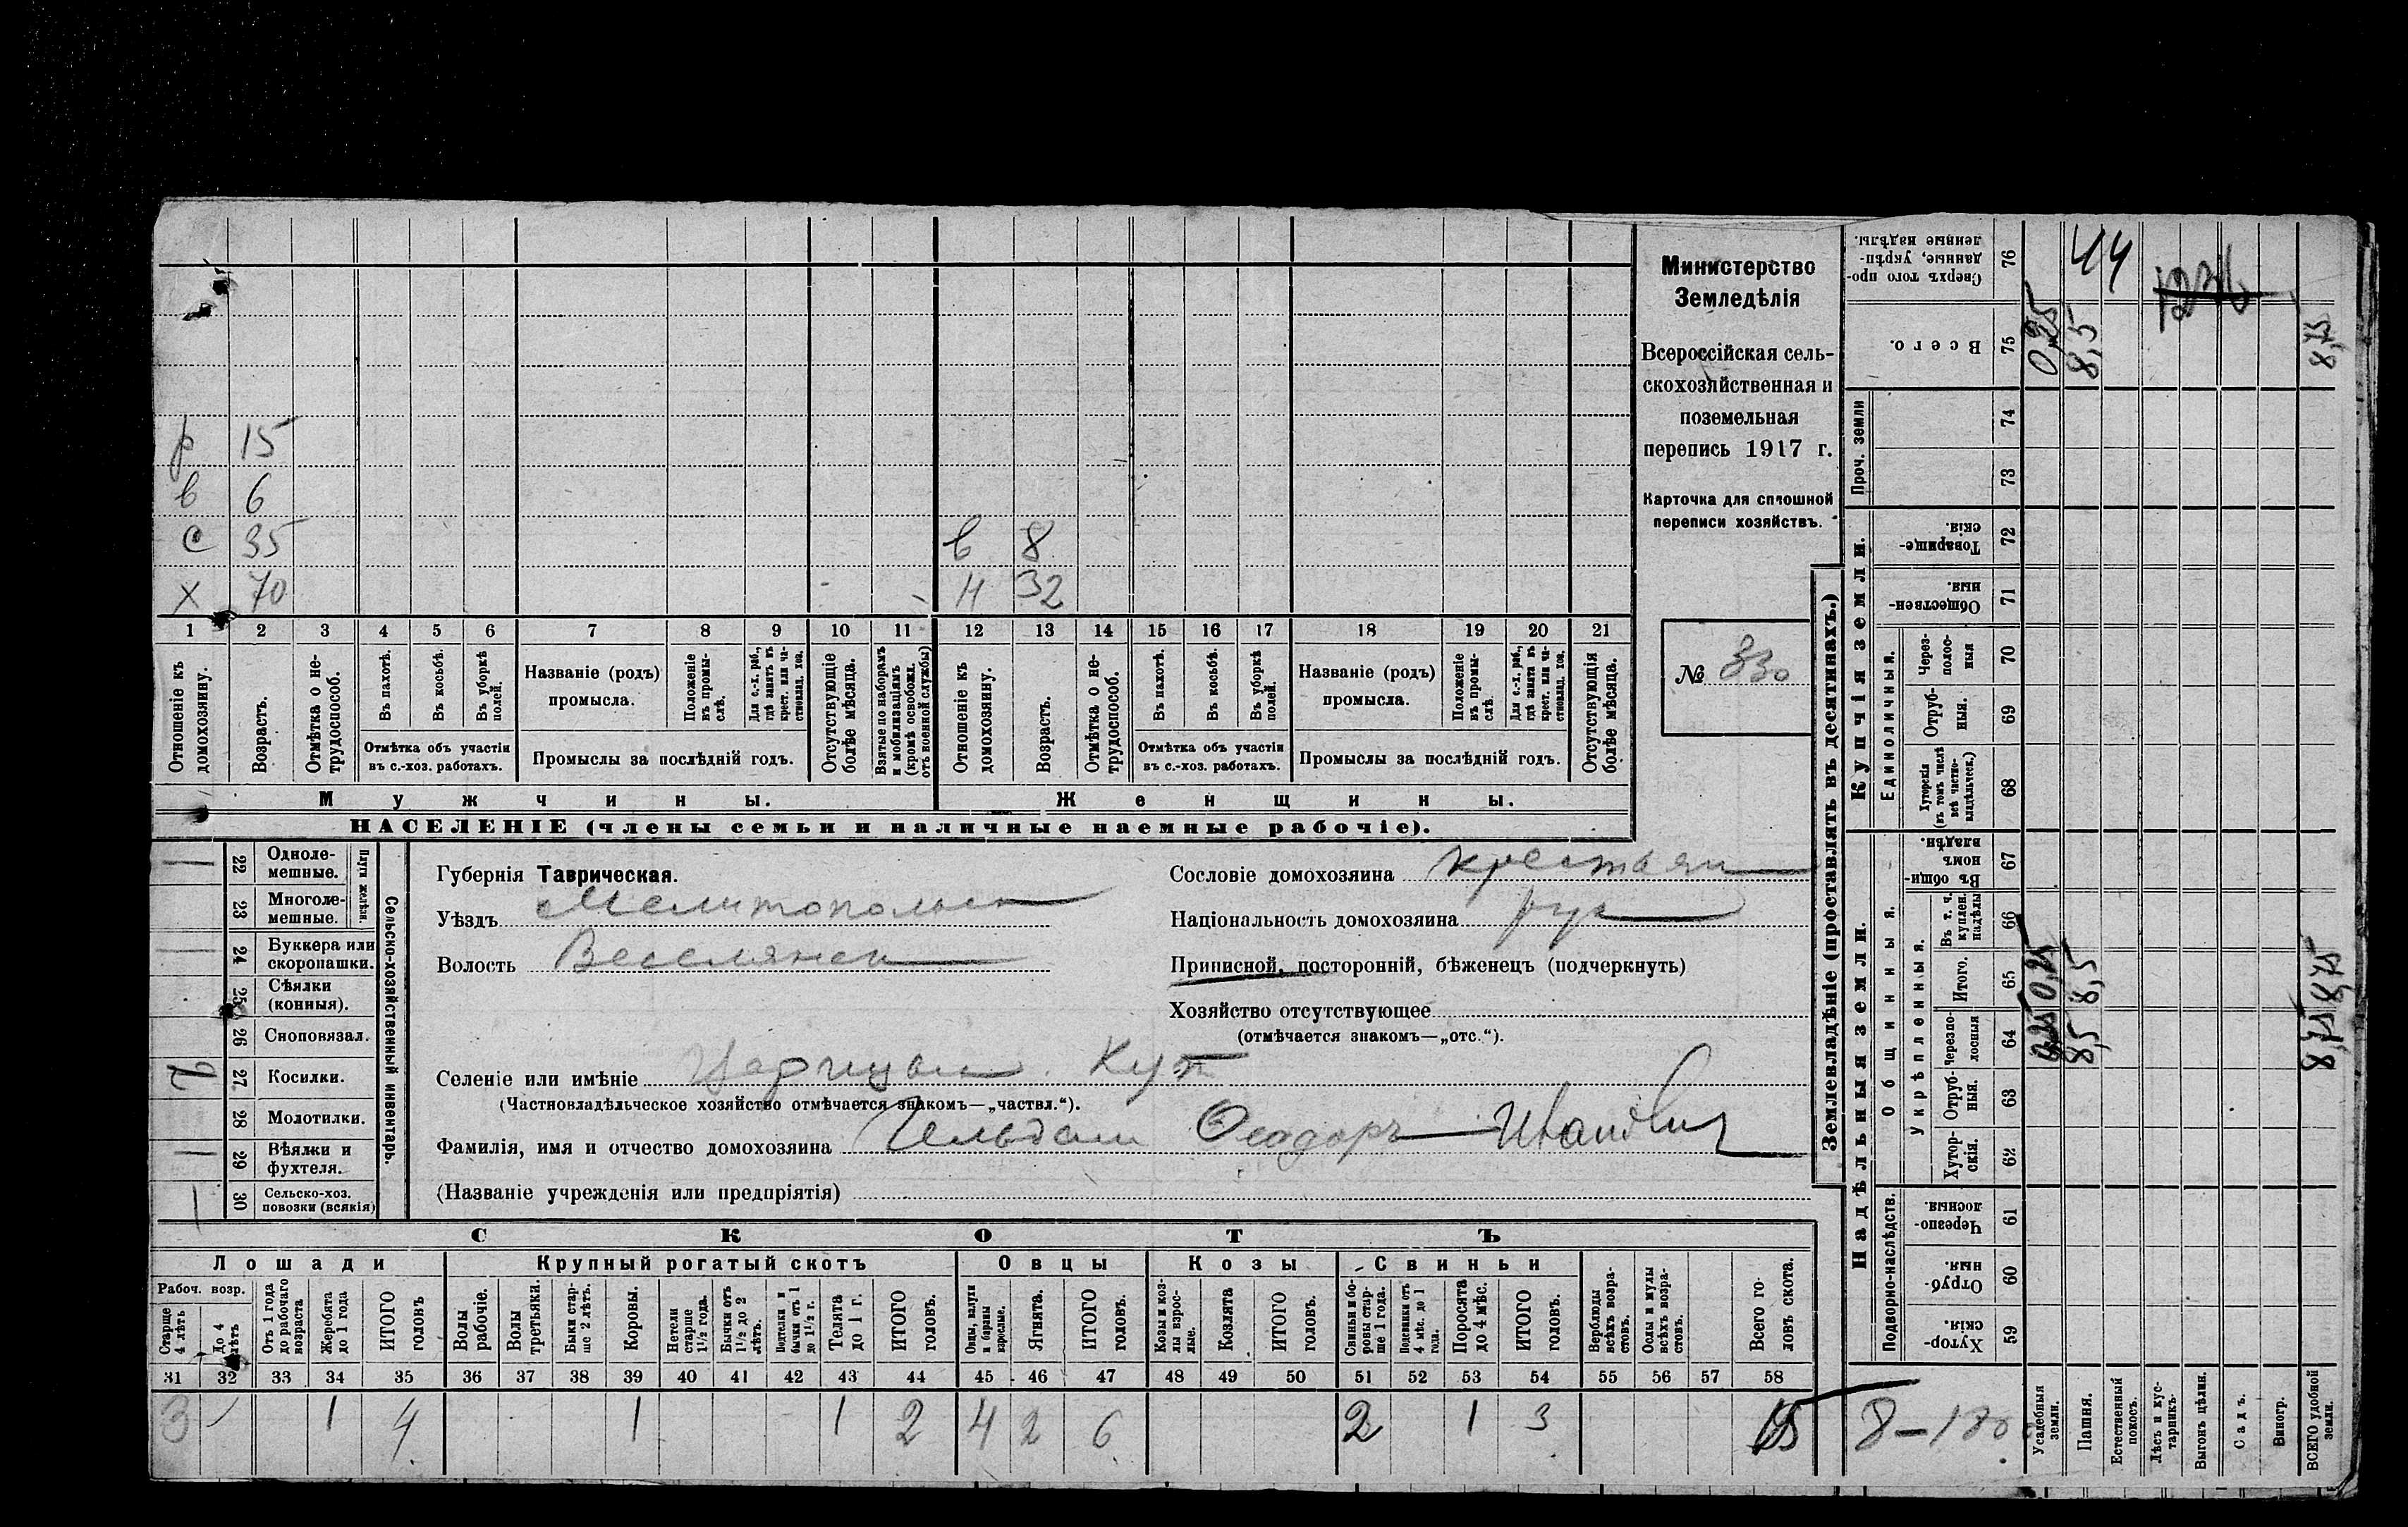 р 15
в 6
с 35 в 8
х 70 н 32
1 2 3 4 5 6 7 8 9 10 11 12 13 14 15 16 17 18 19 20 21
Отношеніе къ домохозяину.
Возрастъ.
Отмѣтка о не-
трудоспособ.
Въ пахотѣ.
Въ косьбѣ.
Въ уборкѣ
полей.
Отмѣтка объ участіи
въ с.-хоз. работахъ.
Названіе (родъ)
промысла.
Положеніе
въ промы-
слѣ.
Для с.-х. раб.,
гдѣ занятъ въ
крест. или ча-
стновлад. хоз.
Промыслы за послѣдній годъ.
Отсутствующіе
болѣе мѣсяца.
Взятые по наборамъ
и мобилизаціямъ
(кромѣ освобожд.
отъ военной службы)
Отношеніе къ
домохозяину.
Возрастъ.
Отмѣтка о не-
трудоспособ.
Въ пахотѣ.
Въ косьбѣ.
Въ уборкѣ
полей.
Отмѣтка объ участіи
въ с.-хоз. работахъ.
Названіе (родъ)
промысла.
Положеніе
въ промы-
слѣ.
Для с.-х. раб.,
гдѣ занята въ
крест. или ча-
стновлад. хоз.
Промыслы за послѣдній годъ.
Отсутствующія
болѣе мѣсяца.
Мужчины.
Женщины.
НАСЕЛЕНІЕ (члены семьи и наличные наемные рабочіе).
Министерство
Земледѣлія
Всероссійская сель-
скохозяйственная и
поземельная
перепись 1917 г.
Карточка для сплошной
переписи хозяйствъ.
№ 330
22 Одноле-
мешные.
23 Многоле-
мешные.
Плуги желѣзн.
24 Буккера или
скоропашки.
25 Сѣялки
(конныя).
26 Сноповязал.
27 Косилки.
28 Молотилки.
29 Вѣялки и
фухтеля.
30 Сельско-хоз.
повозки (всякія)
Сельско-хозяйственный инвентарь.
Губернія Таврическая.
Уѣздъ Мелитопольск
Волость Веселянск
Сословіе домохозяина крестьян
Національность домохозяина рус
Приписной, посторонній, бѣженецъ (подчеркнуть)
Хозяйство отсутствующее
(отмѣчается знакомъ—„отс.“).
Селеніе или имѣніе Царицын Кут
(Частновладѣльческое хозяйство отмѣчается знакомъ—„частвл.“).
Фамилія, имя и отчество домохозяина Феодоръ Иванович
(Названіе учрежденія или предпріятія)
СКОТЪ
Лошади Крупный рогатый скотъ Овцы Козы Свиньи
Рабоч. возр.
Старше
4 лѣтъ
До 4
лѣтъ
Отъ 1 года
до рабочаго
возраста
Жеребята
до 1 года
ИТОГО
головъ
Волы
рабочіе.
Волы
третьяки.
Быки стар-
ше 2 лѣтъ.
Коровы.
Нетели
старше
1½ года.
Бычки отъ
1½ до 2
лѣтъ.
Подтелки и
бычки отъ 1
до 1½ г.
Телята
до 1 г.
ИТОГО
головъ.
Овцы, валухи
и бараны
взрослые.
Ягнята.
ИТОГО
головъ.
Козы и коз-
лы взрос-
лые.
Козлята
ИТОГО
головъ.
Свиньи и бо-
ровы стар-
ше 1 года.
Подсвинки отъ
4 мѣс. до 1
года.
Поросята
до 4 мѣс.
ИТОГО
головъ.
Верблюды
всѣхъ возра-
стовъ.
Ослы и мулы
всѣхъ возра-
стовъ.
Всего го-
ловъ скота.
31 32 33 34 35 36 37 38 39 40 41 42 43 44 45 46 47 48 49 50 51 52 53 54 55 56 57 58
3 1 4 1 1 2 4 2 6 2 1 3 15
8-180
Землевладѣніе (проставлять въ десятинахъ.)
Надѣльныя земли.
Купчія земли.
Проч. земли
Подворно-наслѣдств.
Общинныя.
Укрѣпленныя.
Единоличныя.
Сверхъ того про-
данные, укрѣп-
ленные надѣлы. 76 44
Всего. 75 0,25 8,5 8,75
74
73
Товарище-
скія. 72
Обществен-
ныя. 71
Через-
полос-
ныя 70
Отруб-
ныя. 69
Хуторскія
(въ томъ числѣ
всѣ частно-
владѣльческ.) 68
Въ общи-
номъ
владѣн. 67
Въ т. ч.
куплен.
надѣлы 66
Итого. 65 0,25 8,5 8,75
Черезпо-
лосныя 64 0,25 8,5 8,75
Отруб-
ныя. 63
Хутор-
скія. 62
Черезпо-
лосныя. 61
Отруб-
ныя. 60
Хутор-
скія. 59
Усадебныя
земли.
Пашня.
Естественный
покосъ.
Лѣсъ и кус-
тарникъ.
Выгонъ цѣлин.
Садъ.
Виногр.
ВСЕГО удобной
земли.